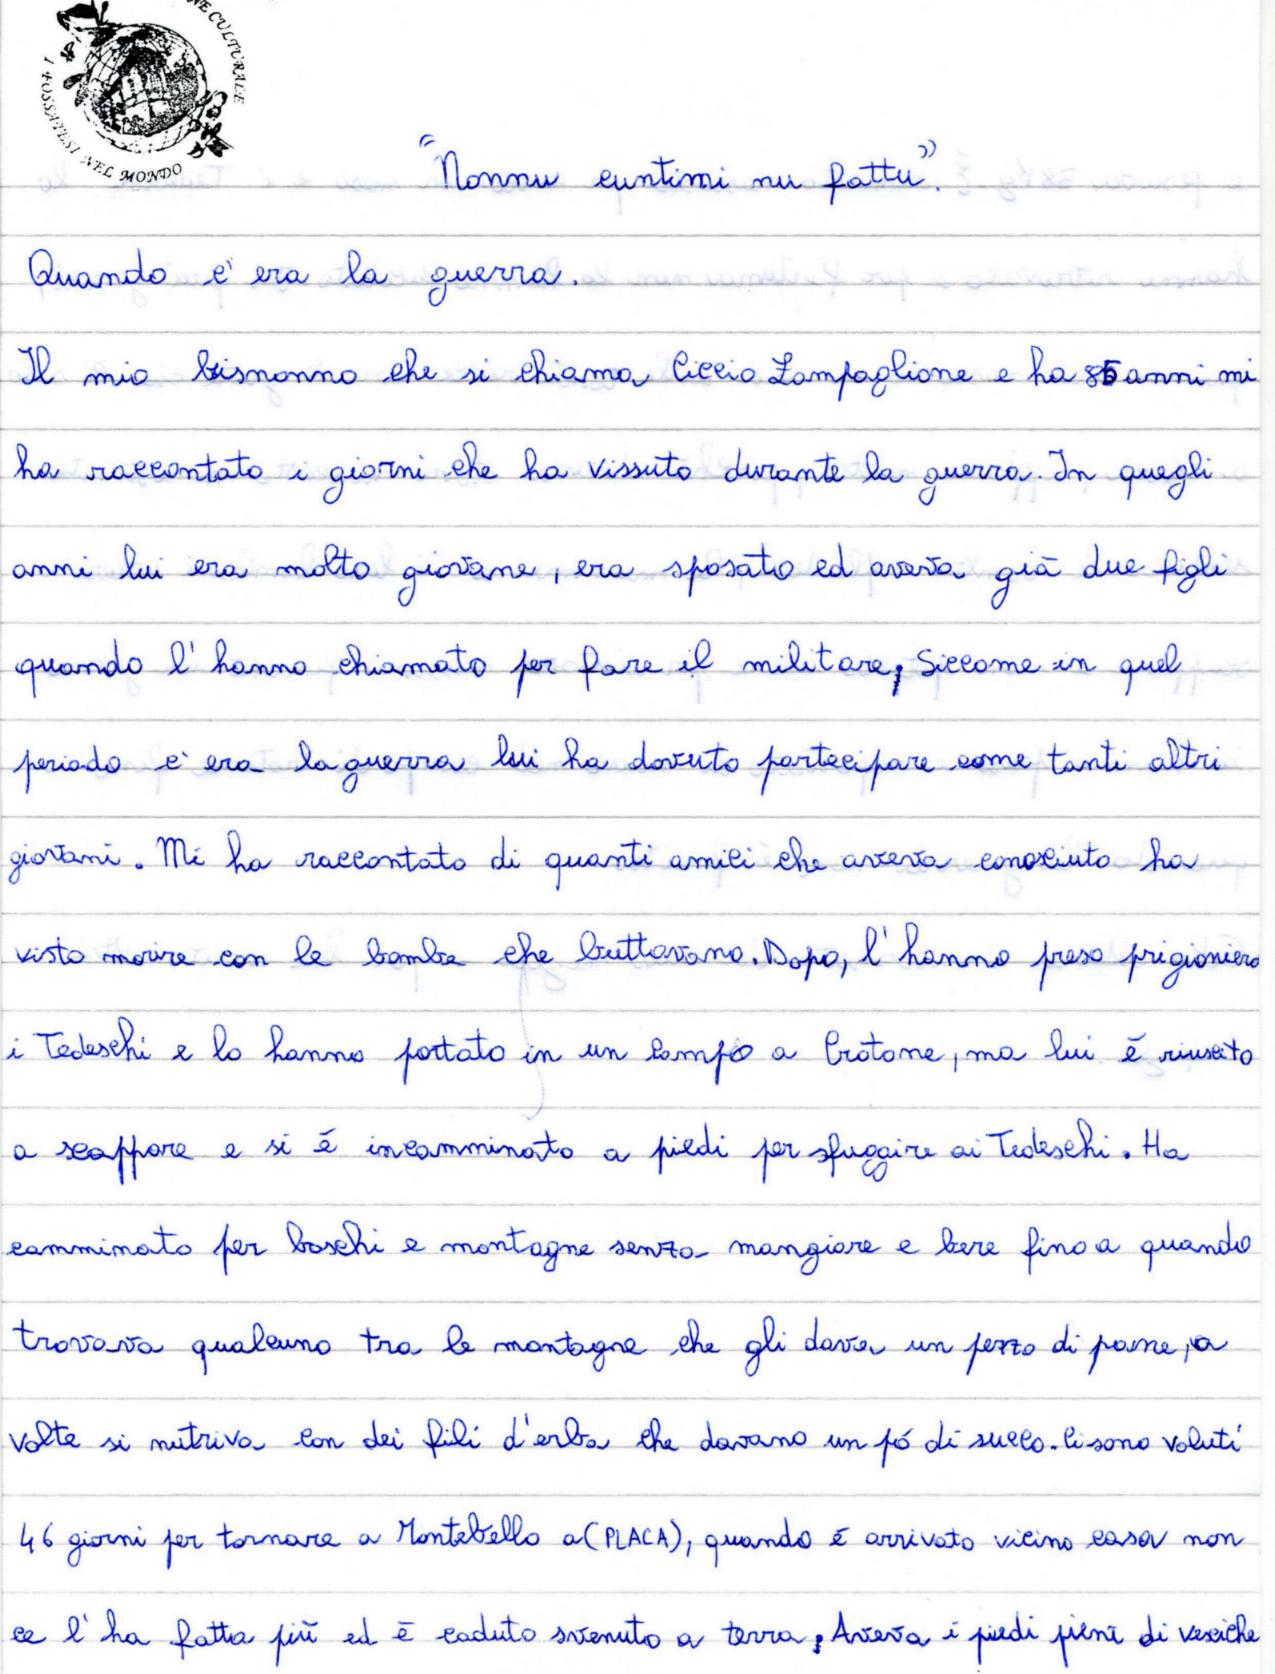 NE CULTURALE
I FOSSATESI NEL MONDO
"Nonnu cuntimi nu fattu".
Quando c'era la guerra.
Il mio bisnonno che si chiama Ciccio Lampaglione e ha 85 anni mi
ha raccontato i giorni che ha vissuto durante la guerra. In quegli
anni lui era molto giovane, era sposato ed aveva già due figli
quando l'hanno chiamato per fare il militare, Siccome in quel
periodo c'era la guerra lui ha dovuto partecipare come tanti altri
giovani. Mi ha raccontato di quanti amici che aveva conosciuto ha
visto morire con le bombe che buttavano. Dopo, l'hanno preso prigioniero
i Tedeschi e lo hanno portato in un campo a Crotone, ma lui é riuscito
a scappare e si é incamminato a piedi per sfuggire ai Tedeschi. Ha
camminato per boschi e montagne senza mangiare e bere fino a quando
trovava qualcuno tra le montagne che gli dava un pezzo di pane, a
volte si nutriva con dei fili d'erba che davano un pó di succo. Ci sono voluti
46 giorni per tornare a Montebello a (PLACA), quando é arrivato vicino casa non
ce l'ha fatta più ed è caduto svenuto a terra, Aveva i piedi pieni di vesciche